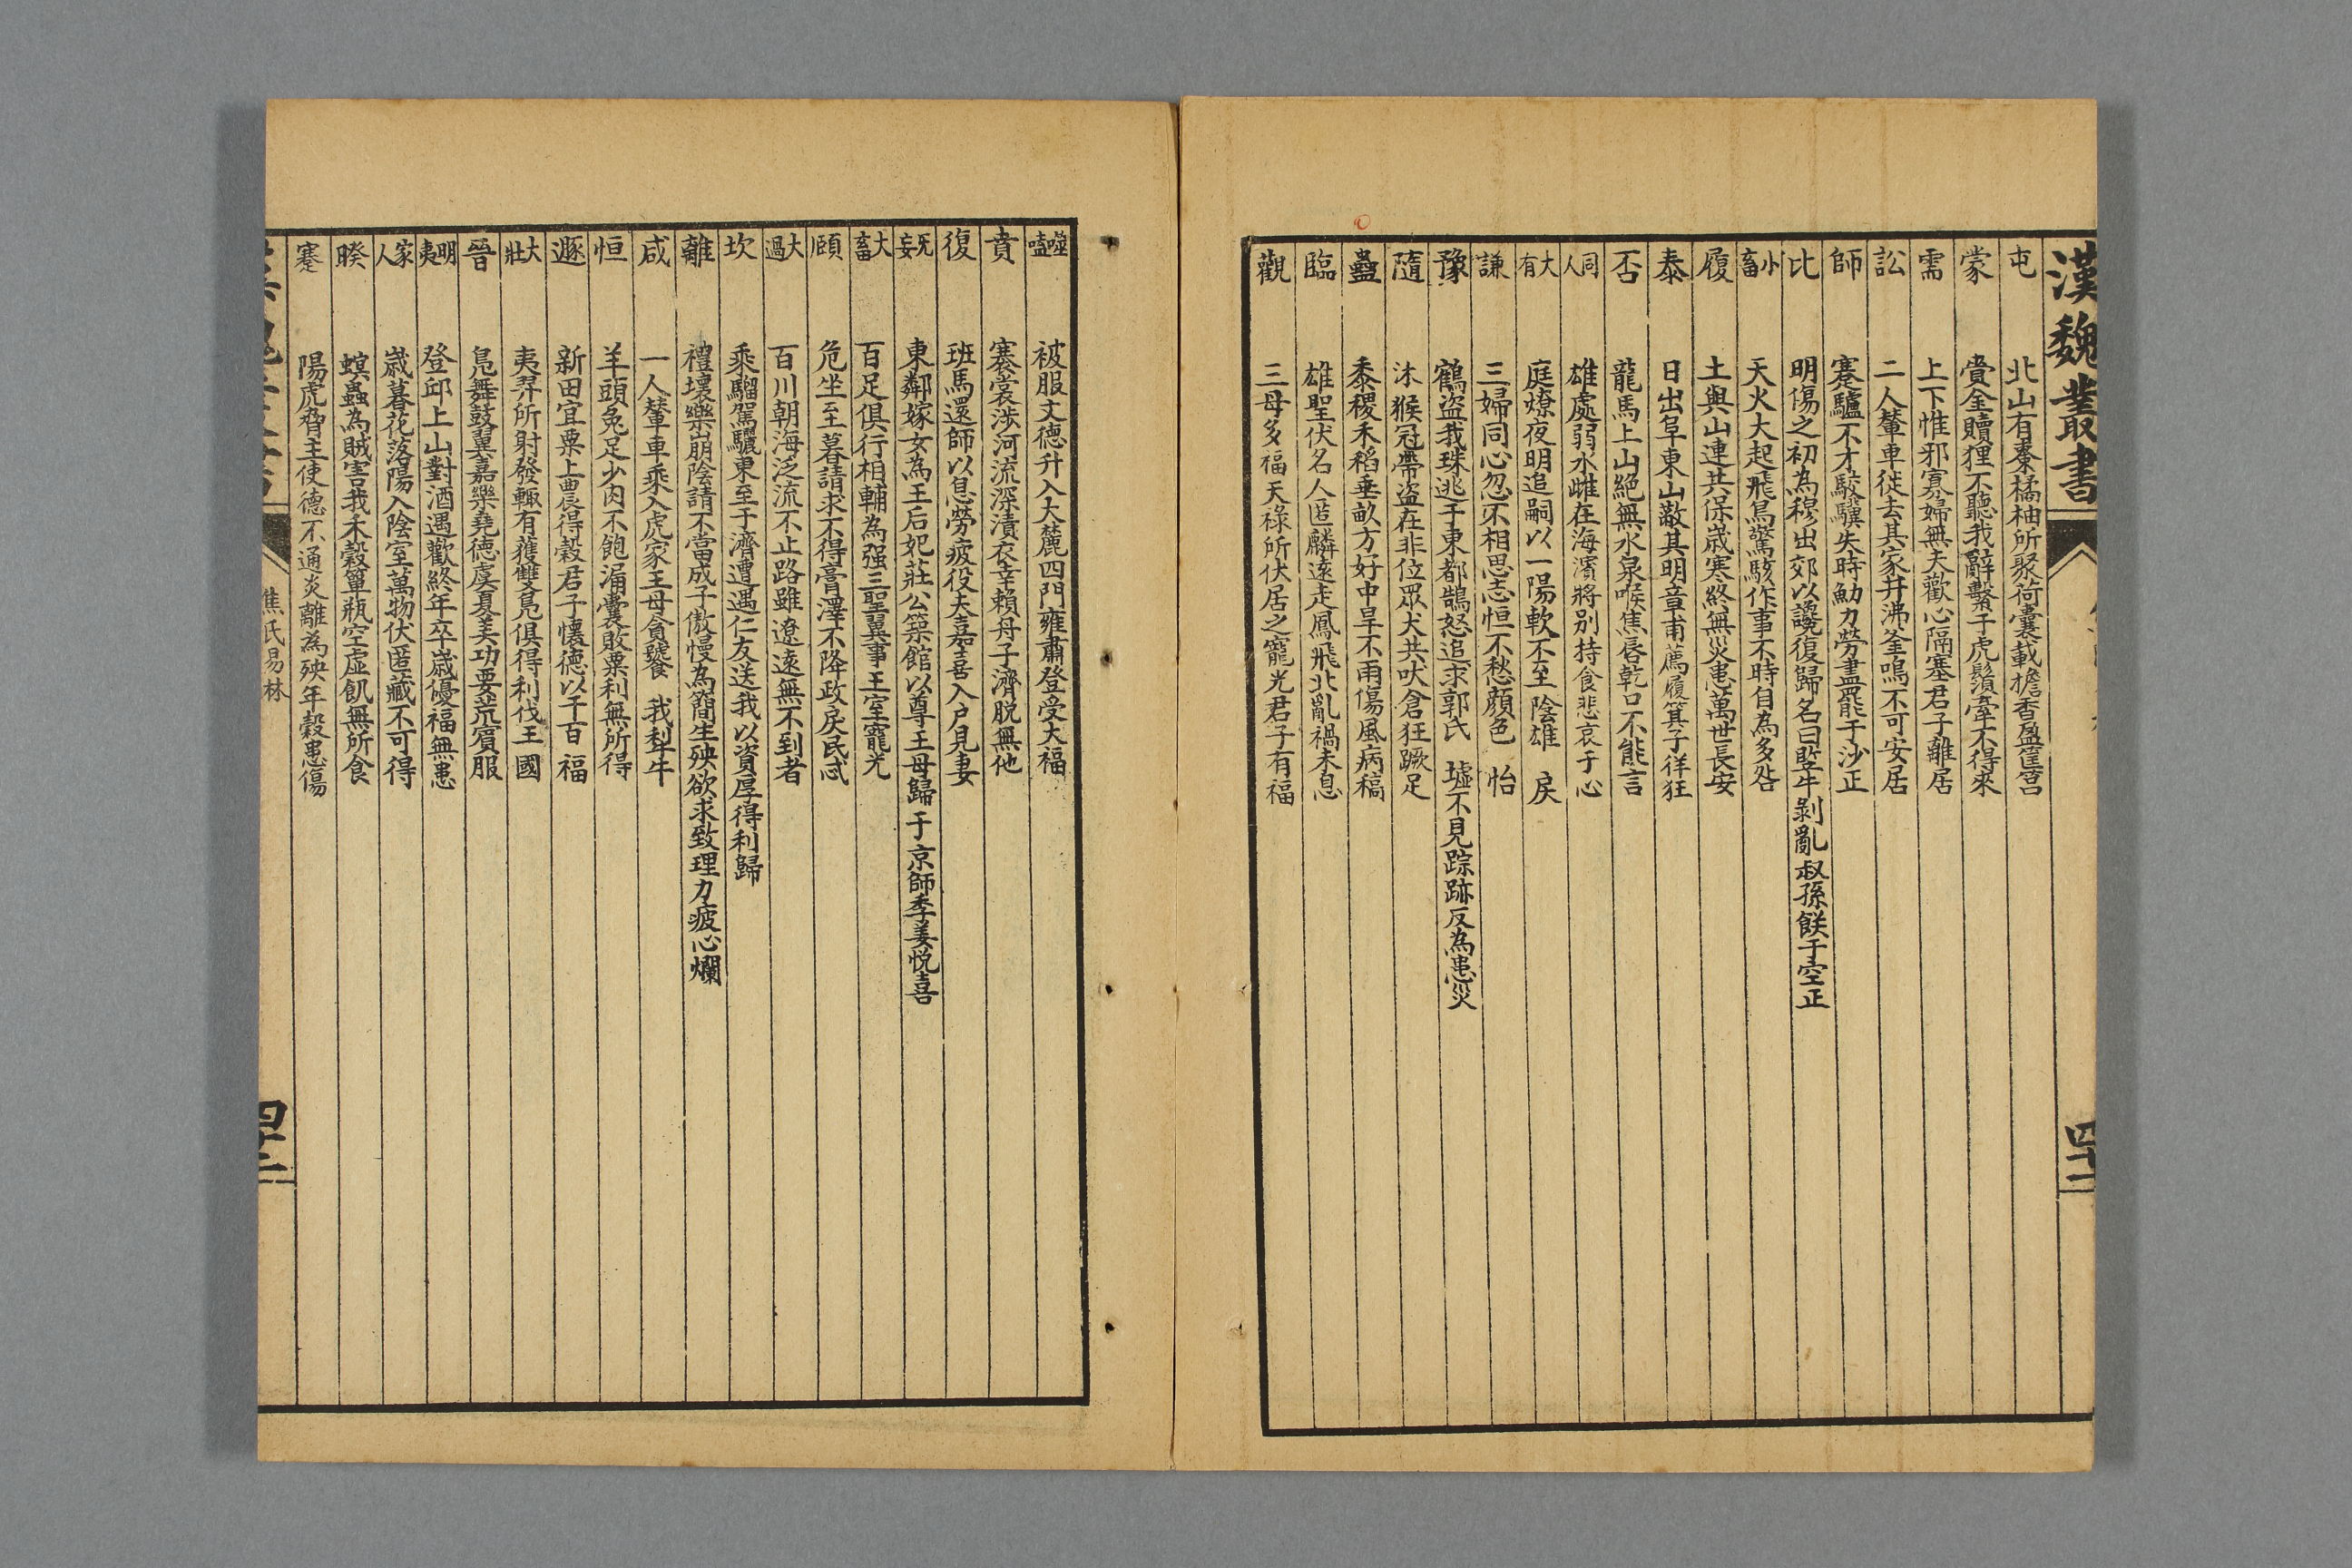 漢魏叢書
四十一
屯 北山有棗橘柚所聚荷囊載擔香盈筐筥
蒙 賞金贖狸不聽我辭繫于虎鬚牽不得來
需 上下惟邪寡婦無夫歡心隔塞君子離居
訟 二人輦車徙去其家井沸釜鳴不可安居
師 蹇驢不才駿驥失時勉力勞盡罷于沙正
比 明傷之初為穆出郊以讒復歸名曰豎牛剝亂叔孫餒于空正
小畜 天火大起飛鳥驚駭作事不時自為多咎
履 土與山連共保歲寒終無災患萬世長安
泰 日出阜東山蔽其明章甫薦履箕子徉狂
否 龍馬上山絕無水泉喉焦唇乾口不能言
同人 雄處弱水雌在海濱將別持食悲哀于心
大有 庭燎夜明追嗣以一陽軟不至陰雄 戾
謙 三婦同心忽不相思志恒不愁顔色 怡
豫 鶴盜我珠逃于東都鵠怒追求郭氏 墟不見踪跡反為患災
隨 沐猴冠帶盜在非位眾犬共吠倉狂蹶足
蠱 黍稷禾稻垂畝方好中旱不雨傷風病稿
臨 雄聖伏名人匿麟遠走鳳飛北亂禍未息
觀 三母多福天祿所伏居之寵光君子有福
噬嗑 被服文德升入大麓四門雍肅登受大福
賁 褰裳涉河流深漬衣幸賴舟子濟脱無他
復 班馬還師以息勞疲役夫嘉喜入户見妻
无妄 東鄰嫁女為王后妃莊公築館以尊王母歸于京師季姜悅喜
大畜 百足俱行相輔為强三聖翼事王室寵光
頤 危坐至暮請求不得膏澤不降政戾民忒
大過 百川朝海泛流不止路雖遼遠無不到者
坎 乘騮駕驪東至于濟遭遇仁友送我以資厚得利歸
離 禮壞樂崩陰請不當成子傲慢為簡生殃欲求致理力疲心爛
咸 一人輦車乘入虎家王母貪饕 我犁牛
恒 羊頭兔足少肉不飽漏囊敗粟利無所得
遯 新田宜粟上農得穀君子懷德以干百 福
大壯 夷羿所射發輒有獲雙鳧俱得利伐王國
晉 鳧舞鼓翼嘉樂堯德虞夏美功要荒賓服
明夷 登邱上山對酒遇歡終年卒歲優福無患
家人 歲暮花落陽入陰室萬物伏匿藏不可得
睽 螟蟲為賊害我禾穀簞瓶空虛飢無所食
蹇 陽虎脅主使德不通炎離為殃年穀患傷
焦氏易林
四十二